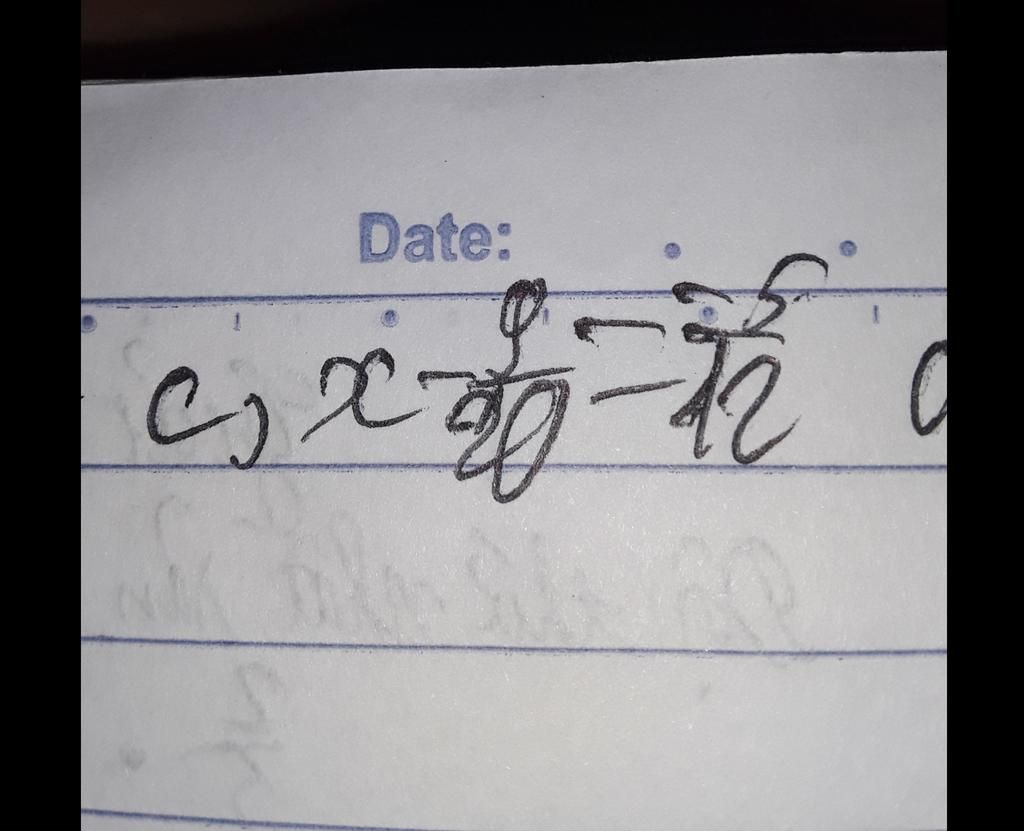 Date:
c, x - 9/20 = -5/12